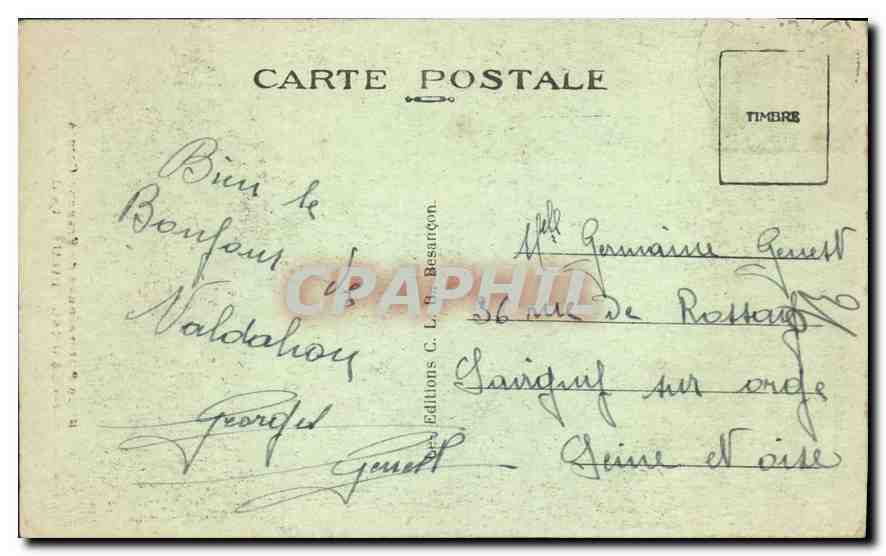 CARTE POSTALE
TIMBRE
Bien le
Bonjour
de
Valdahon
Georges
Genest
Les Editions C. L. B. Besançon.
CPAPHIL
Melle Germaine Genest
36 rue de Rossays
Savigny sur orge
Seine et Oise